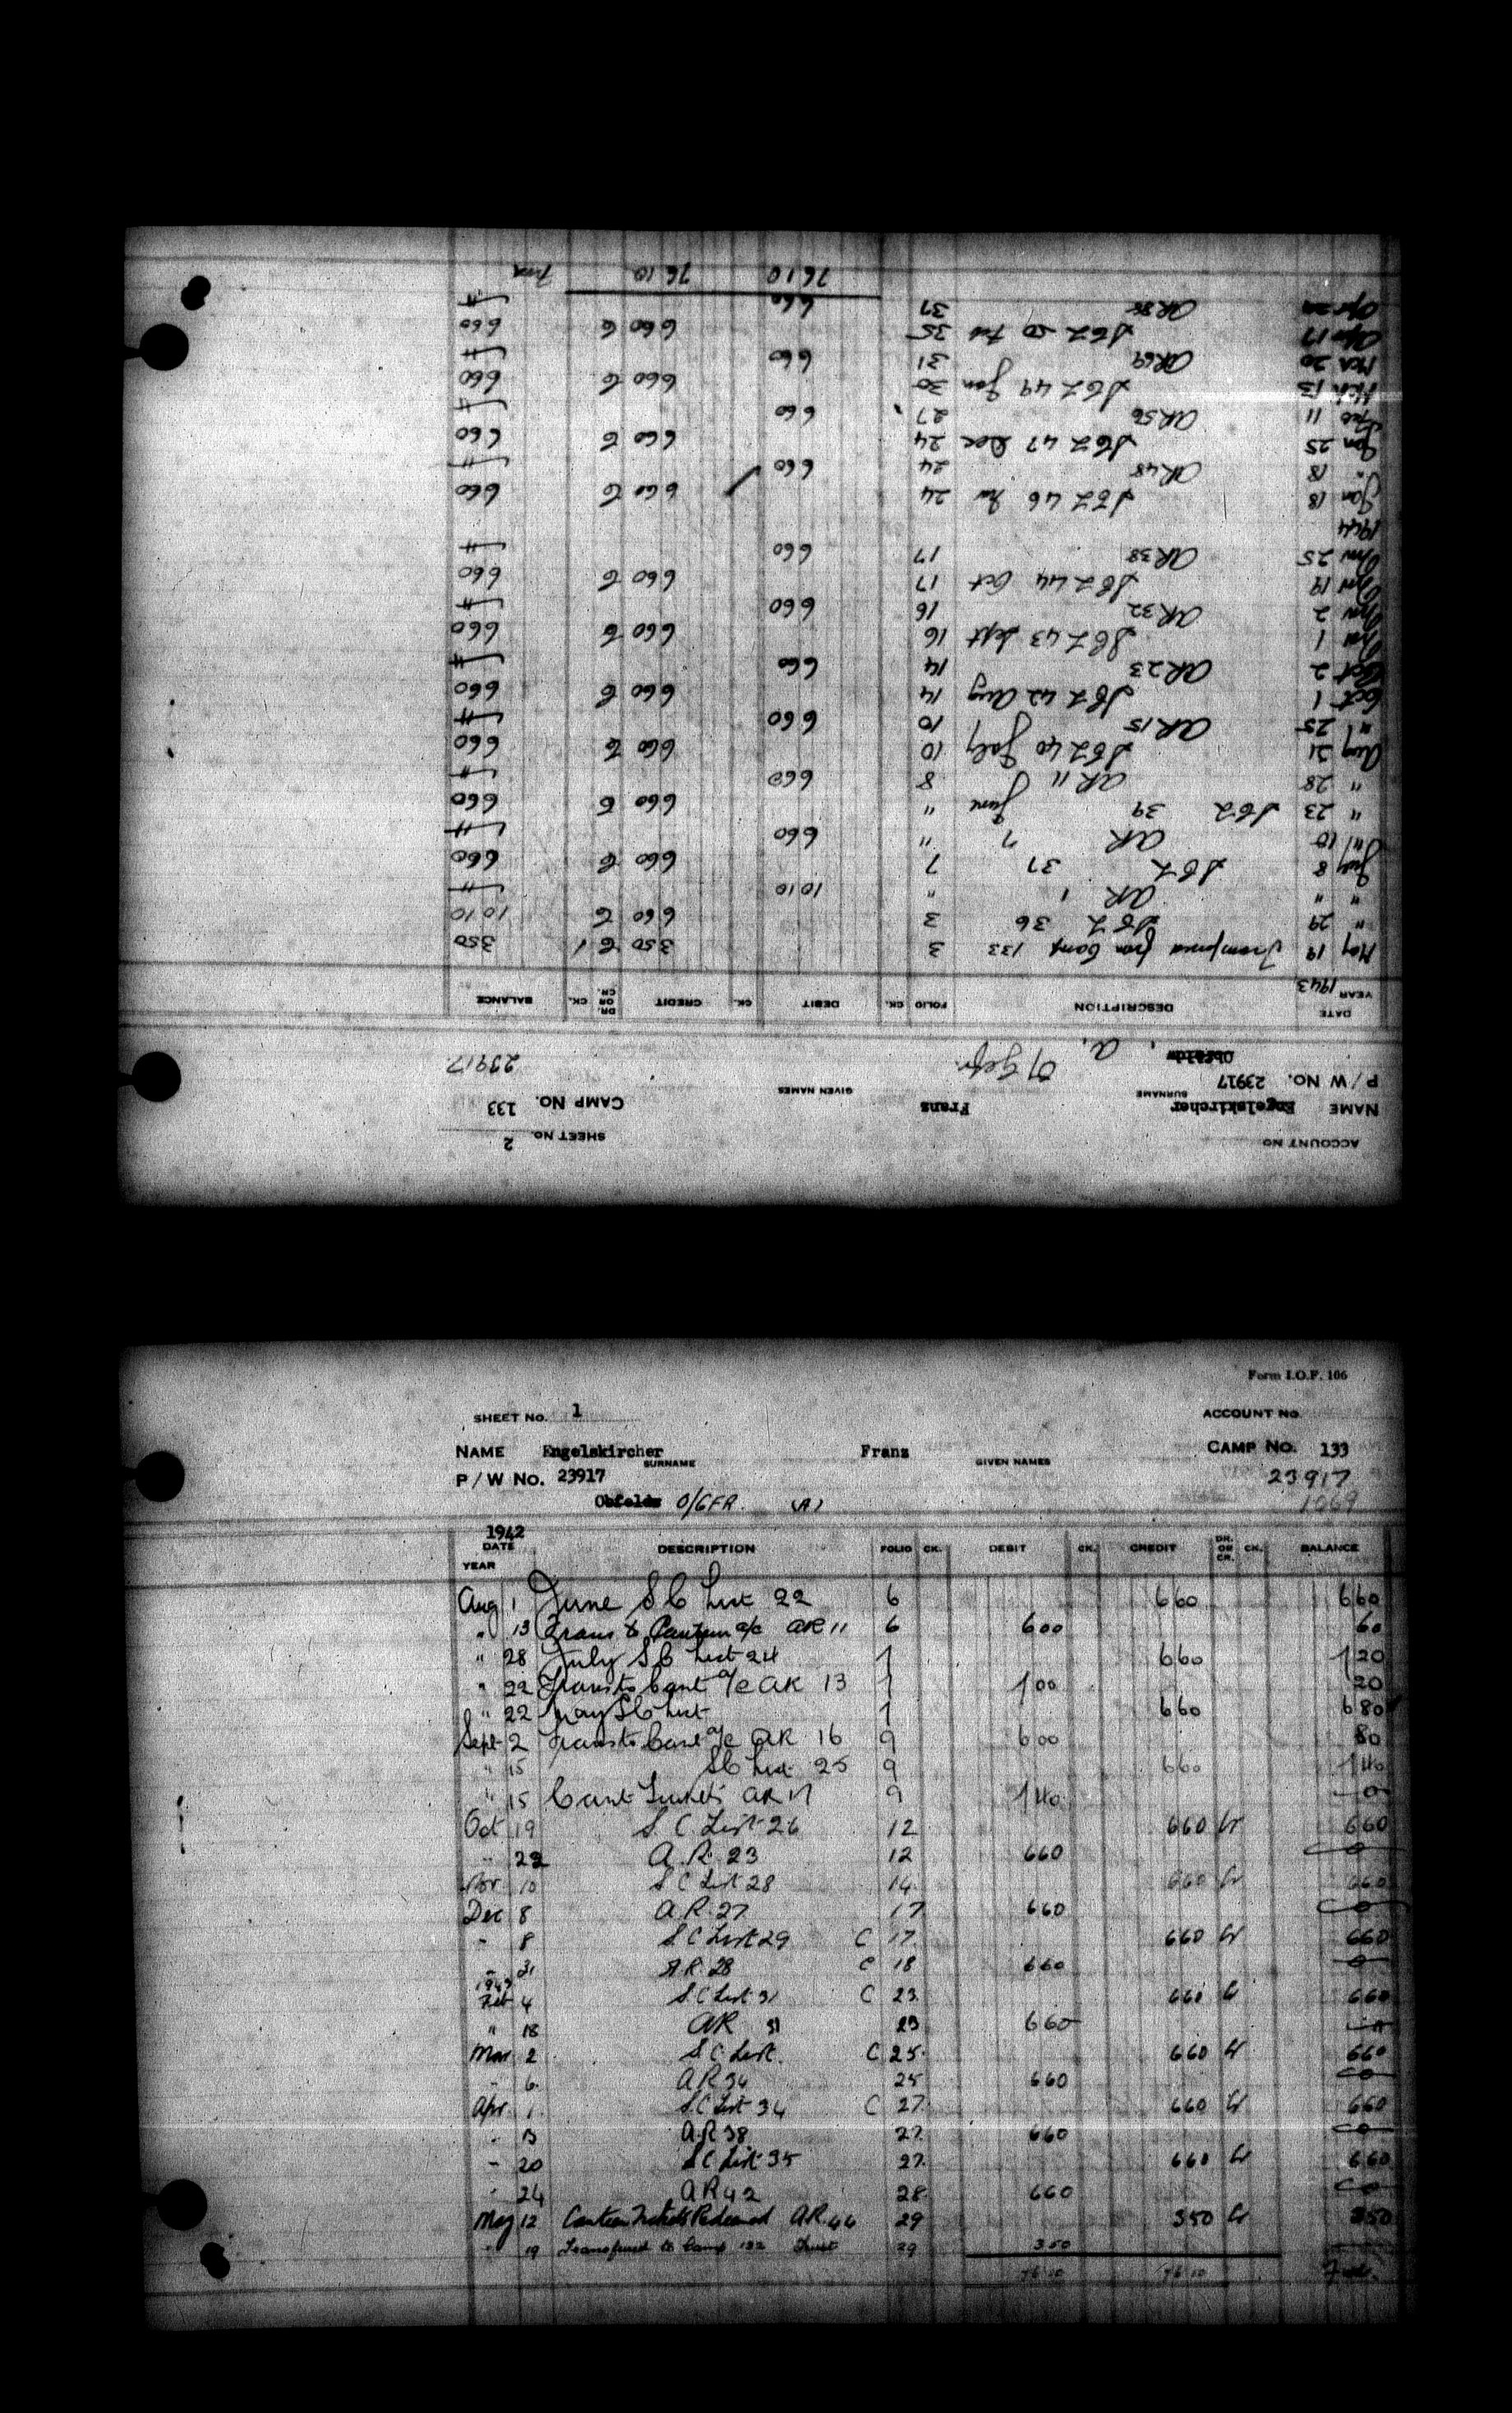 ACCOUNT NO
SHEET No. 2
NAME Engelskircher Franz CAMP No. 133
SURNAME GIVEN NAMES
P/W No. 23917 23917
Obfeldw O/Gefr. A.
DATE YEAR 1943 DESCRIPTION FOLIO CK. DEBIT CK. CREDIT DR. OR CR. CK. BALANCE
May 19 Transferred from Camp 133 3 350 350
" 29 36 3 660 1010
" " AR 1 " 1010
July 8 37 7 660 660
" 10 AR 7 " 660
" 23 39 June " 660 660
" 28 AR 11 8 660
Aug 21 40 July 10 660 660
" 25 AR 15 10 660
Oct 1 42 Aug 14 660 660
Oct 2 AR 23 14 660
Nov 1 43 Sept 16 660 660
Nov 2 AR 32 16 660
Nov 19 44 Oct 17 660 660
Nov 25 AR 38 17 660
1944
Jan 18 46 24 660 660
" 18 AR 48 24 660
Jan 25 47 Dec 24 660 660
Feb 11 AR 56 27 660
Mch 13 49 Jan 30 660 660
Mch 20 AR 69 31 660
Apr 17 50 Feb 35 660 660
AR 37 660
7610 7610
Form I.O.F. 106
SHEET No. 1 ACCOUNT No.
NAME Engelskircher Franz CAMP No. 133
SURNAME GIVEN NAMES
P/W No. 23917 23917
Obfeldw O/GFR. (A) 1069
1942 DATE YEAR DESCRIPTION FOLIO CK. DEBIT CK. CREDIT DR. OR CR. CK. BALANCE
Aug 1 June S C List 22 6 660 660
" 13 Trans to Canteen a/c AR 11 6 600 60
" 28 July S C List 24 1 660 720
" 22 Trans to Cant a/c AR 13 1 700 20
" 22 May S C List 1 660 680
Sept 2 Trans to Cant a/c AR 16 9 600 80
" 15 S C List 25 9 660 740
" 15 Cant Tickets AR 17 9 740 0
Oct 19 S C List 26 12 660 Cr 660
" 22 A.R. 23 12 660 0
Nov 10 S C List 28 14 660 Cr 660
Dec 8 A.R. 27 17 660 0
" 8 S C List 29 C 17 660 Cr 660
" 31 A.R. 28 C 18 660 0
1943
Feb 4 S.C List 31 C 23 660 Cr 660
" 18 AR 31 23 660 0
Mar 2 S.C List. C 25 660 Cr 660
" 6 A R 34 25 660 0
Apr 1 S.C List 34 C 27 660 Cr 660
" 13 A.R 38 27 660 0
" 20 S.C List 35 27 660 Cr 660
" 24 A R 42 28 660 0
May 12 Canteen Tickets Redeemed A.R. 44 29 350 Cr 350
" 19 Transferred to Camp 132 Trust 29 350
7610 7610